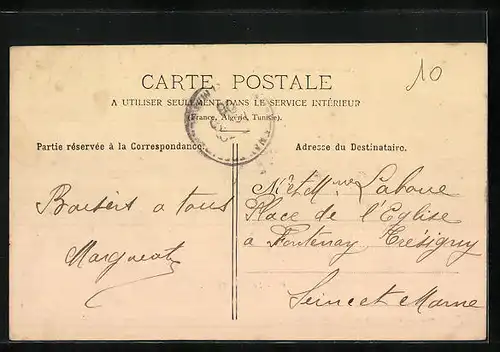 10
CARTE POSTALE
A UTILISER SEULEMENT DANS LE SERVICE INTÉRIEUR
(France, Algérie, Tunisie).
Partie réservée à la Correspondance.
Adresse du Destinataire.
Baisers a tous
M. et Mme
Place de l'Eglise
a Fontenay Trésigny
Seine et Marne